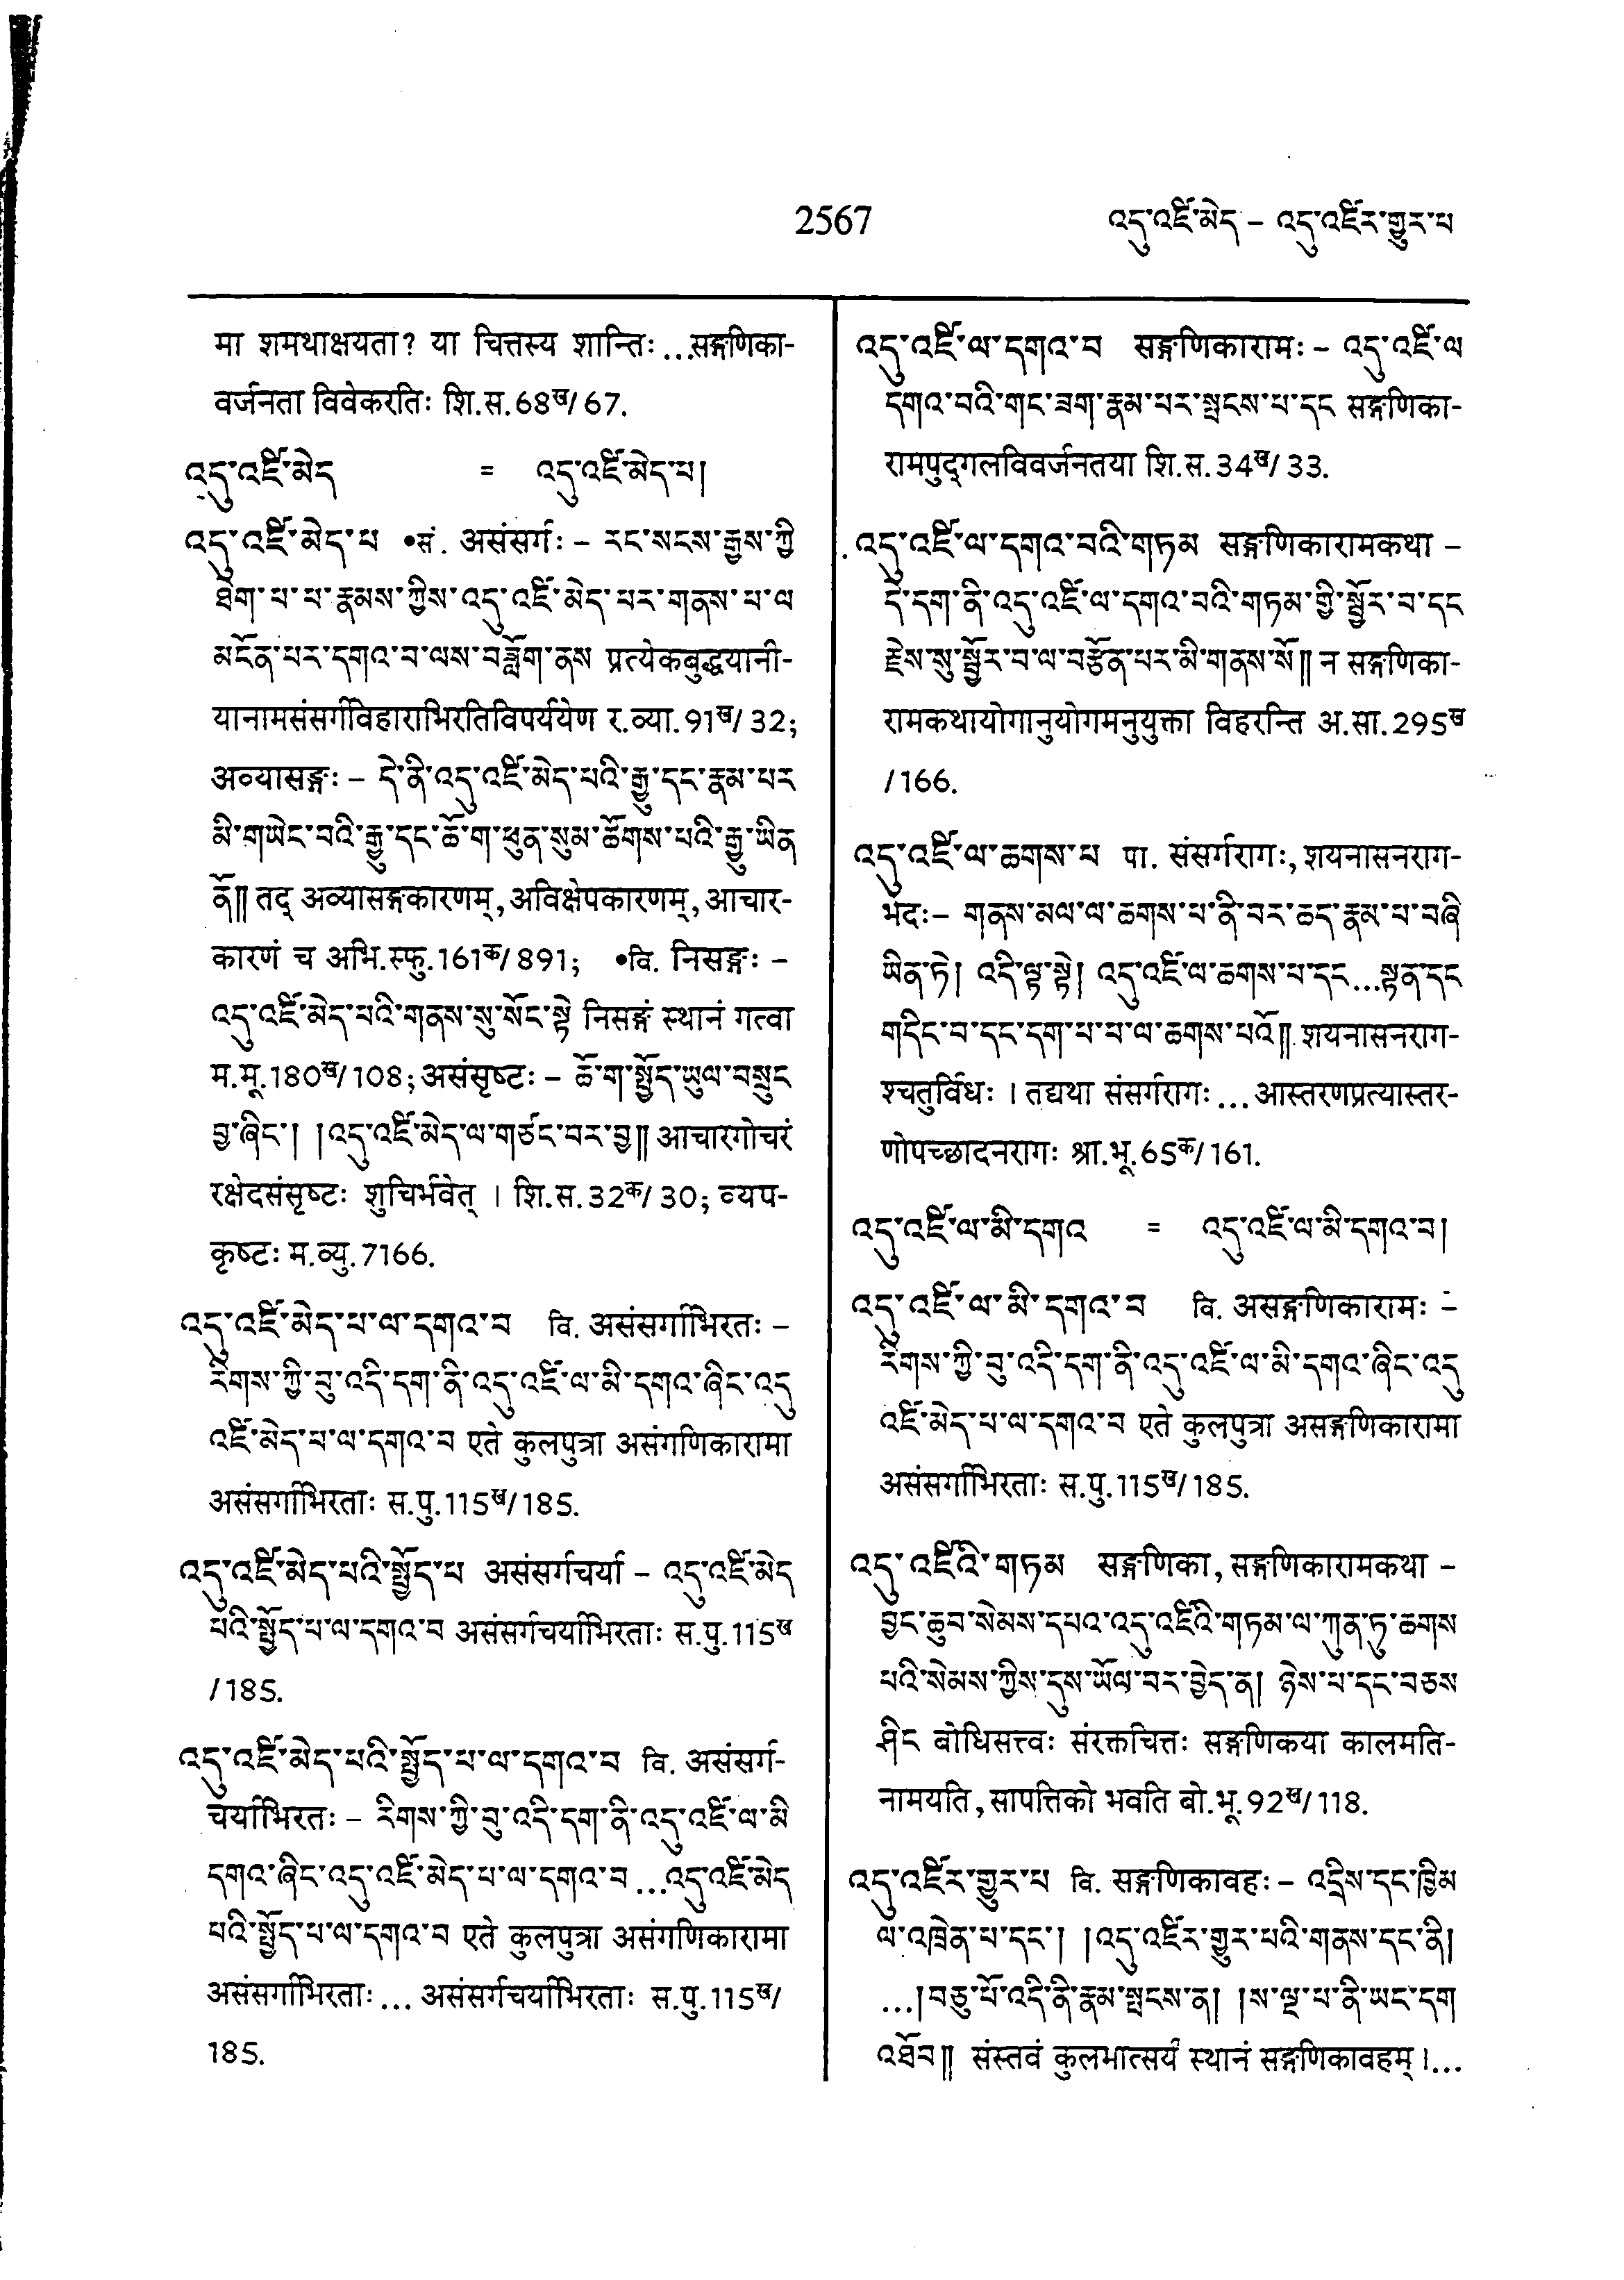 2567
འདུ་འཛི་མེད – འདུ་འཛིར་གྱུར་པ
मा शमथाक्षयता? या चित्तस्य शान्तिः...सङ्गणिका-
वर्जनता विवेकरतिः शि.स.68ख/67.
འདུ་འཛི་མེད = འདུ་འཛི་མེད་པ།
འདུ་འཛི་མེད་པ •सं. असंसर्गः – རང་སངས་རྒྱས་ཀྱི
ཐེག་པ་པ་རྣམས་ཀྱིས་འདུ་འཛི་མེད་པར་གནས་པ་ལ
མངོན་པར་དགའ་བ་ལས་བཟློག་ནས प्रत्येकबुद्धयानी-
यानामसंसर्गविहाराभिरतिविपर्ययेण र.व्या.91ख/32;
अव्यासङ्गः – དེ་ནི་འདུ་འཛི་མེད་པའི་རྒྱུ་དང་རྣམ་པར
མི་གཡེང་བའི་རྒྱུ་དང་ཆོ་ག་ཕུན་སུམ་ཚོགས་པའི་རྒྱུ་ཡིན
ནོ།། तद् अव्यासङ्गकारणम्, अविक्षेपकारणम्, आचार-
कारणं च अभि.स्फु.161क/891; •वि. निसङ्गः –
འདུ་འཛི་མེད་པའི་གནས་སུ་སོང་སྟེ निसङ्गं स्थानं गत्वा
म.मू.180ख/108; असंसृष्टः – ཆོ་ག་སྤྱོད་ཡུལ་བསྲུང
བྱ་ཞིང་། །འདུ་འཛི་མེད་ལ་གཙང་བར་བྱ།། आचारगोचरं
रक्षेदसंसृष्टः शुचिर्भवेत् । शि.स.32क/30; व्यप-
कृष्टः म.व्यु.7166.
འདུ་འཛི་མེད་པ་ལ་དགའ་བ वि. असंसर्गाभिरतः –
རིགས་ཀྱི་བུ་འདི་དག་ནི་འདུ་འཛི་ལ་མི་དགའ་ཞིང་འདུ
འཛི་མེད་པ་ལ་དགའ་བ एते कुलपुत्रा असंगणिकारामा
असंसर्गाभिरताः स.पु.115ख/185.
འདུ་འཛི་མེད་པའི་སྤྱོད་པ असंसर्गचर्या – འདུ་འཛི་མེད
པའི་སྤྱོད་པ་ལ་དགའ་བ असंसर्गचर्याभिरताः स.पु.115ख
/185.
འདུ་འཛི་མེད་པའི་སྤྱོད་པ་ལ་དགའ་བ वि. असंसर्ग-
चर्याभिरतः – རིགས་ཀྱི་བུ་འདི་དག་ནི་འདུ་འཛི་ལ་མི
དགའ་ཞིང་འདུ་འཛི་མེད་པ་ལ་དགའ་བ ...འདུ་འཛི་མེད
པའི་སྤྱོད་པ་ལ་དགའ་བ एते कुलपुत्रा असंगणिकारामा
असंसर्गाभिरताः... असंसर्गचर्याभिरताः स.पु.115ख/
185.
འདུ་འཛི་ལ་དགའ་བ सङ्गणिकारामः – འདུ་འཛི་ལ
དགའ་བའི་གང་ཟག་རྣམ་པར་སྤངས་པ་དང सङ्गणिका-
रामपुद्गलविवर्जनतया शि.स.34ख/33.
འདུ་འཛི་ལ་དགའ་བའི་གཏམ सङ्गणिकारामकथा –
དེ་དག་ནི་འདུ་འཛི་ལ་དགའ་བའི་གཏམ་གྱི་སྦྱོར་བ་དང
རྗེས་སུ་སྦྱོར་བ་ལ་བརྩོན་པར་མི་གནས་སོ།། न सङ्गणिका-
रामकथायोगानुयोगमनुयुक्ता विहरन्ति अ.सा.295ख
/166.
འདུ་འཛི་ལ་ཆགས་པ पा. संसर्गरागः, शयनासनराग-
भेदः– གནས་མལ་ལ་ཆགས་པ་ནི་བར་ཆད་རྣམ་པ་བཞི
ཡིན་ཏེ། འདི་ལྟ་སྟེ། འདུ་འཛི་ལ་ཆགས་པ་དང...སྟན་དང
གདིང་བ་དང་དག་པ་པ་ལ་ཆགས་པའོ།། शयनासनराग-
श्चतुर्विधः । तद्यथा संसर्गरागः...आस्तरणप्रत्यास्तर-
णोपच्छादनरागः श्रा.भू.65क/161.
འདུ་འཛི་ལ་མི་དགའ = འདུ་འཛི་ལ་མི་དགའ་བ།
འདུ་འཛི་ལ་མི་དགའ་བ वि. असङ्गणिकारामः –
རིགས་ཀྱི་བུ་འདི་དག་ནི་འདུ་འཛི་ལ་མི་དགའ་ཞིང་འདུ
འཛི་མེད་པ་ལ་དགའ་བ एते कुलपुत्रा असङ्गणिकारामा
असंसर्गाभिरताः स.पु.115ख/185.
འདུ་འཛིའི་གཏམ सङ्गणिका, सङ्गणिकारामकथा –
བྱང་ཆུབ་སེམས་དཔའ་འདུ་འཛིའི་གཏམ་ལ་ཀུན་ཏུ་ཆགས
པའི་སེམས་ཀྱིས་དུས་ཡོལ་བར་བྱེད་ན། ཉེས་པ་དང་བཅས
ཤིང बोधिसत्त्वः संरक्तचित्तः सङ्गणिकया कालमति-
नामयति, सापत्तिको भवति बो.भू.92ख/118.
འདུ་འཛིར་གྱུར་པ वि. सङ्गणिकावहः – འདྲིས་དང་ཁྱིམ
ལ་འཁྲེན་པ་དང་། །འདུ་འཛིར་གྱུར་པའི་གནས་དང་ནི།
...།བཅུ་པོ་འདི་ནི་རྣམ་སྤངས་ན། །ས་ལྔ་པ་ནི་ཡང་དག
འཐོབ།། संस्तवं कुलमात्सर्यं स्थानं सङ्गणिकावहम् ।...